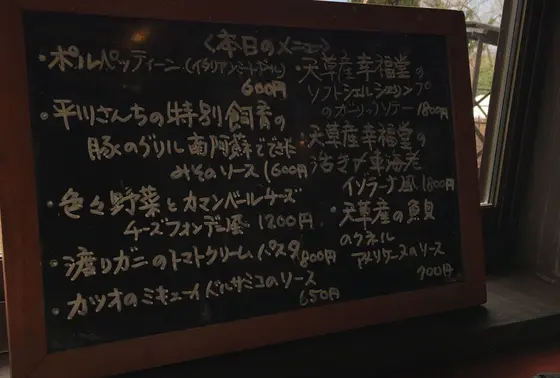 〈本日のメニュー〉
・ポルペッティーン(イタリアンミートボール)
600円
・平川さんちの特別飼育の
豚のグリル 南阿蘇でできた
みそのソース 1600円
・色々野菜とカマンベールチーズ
チーズフォンデュ風 1200円
・渡りガニのトマトクリームパスタ 800円
・カツオのミキュイ バルサミコのソース
650円
・天草産幸福堂の
ソフトシェルシュリンプ
のガーリックソテー 1800円
・天草産幸福堂の
活き〆車海老
イゾラーナ風 1800円
・天草産の魚貝
のクネル
アメリケーヌのソース
900円